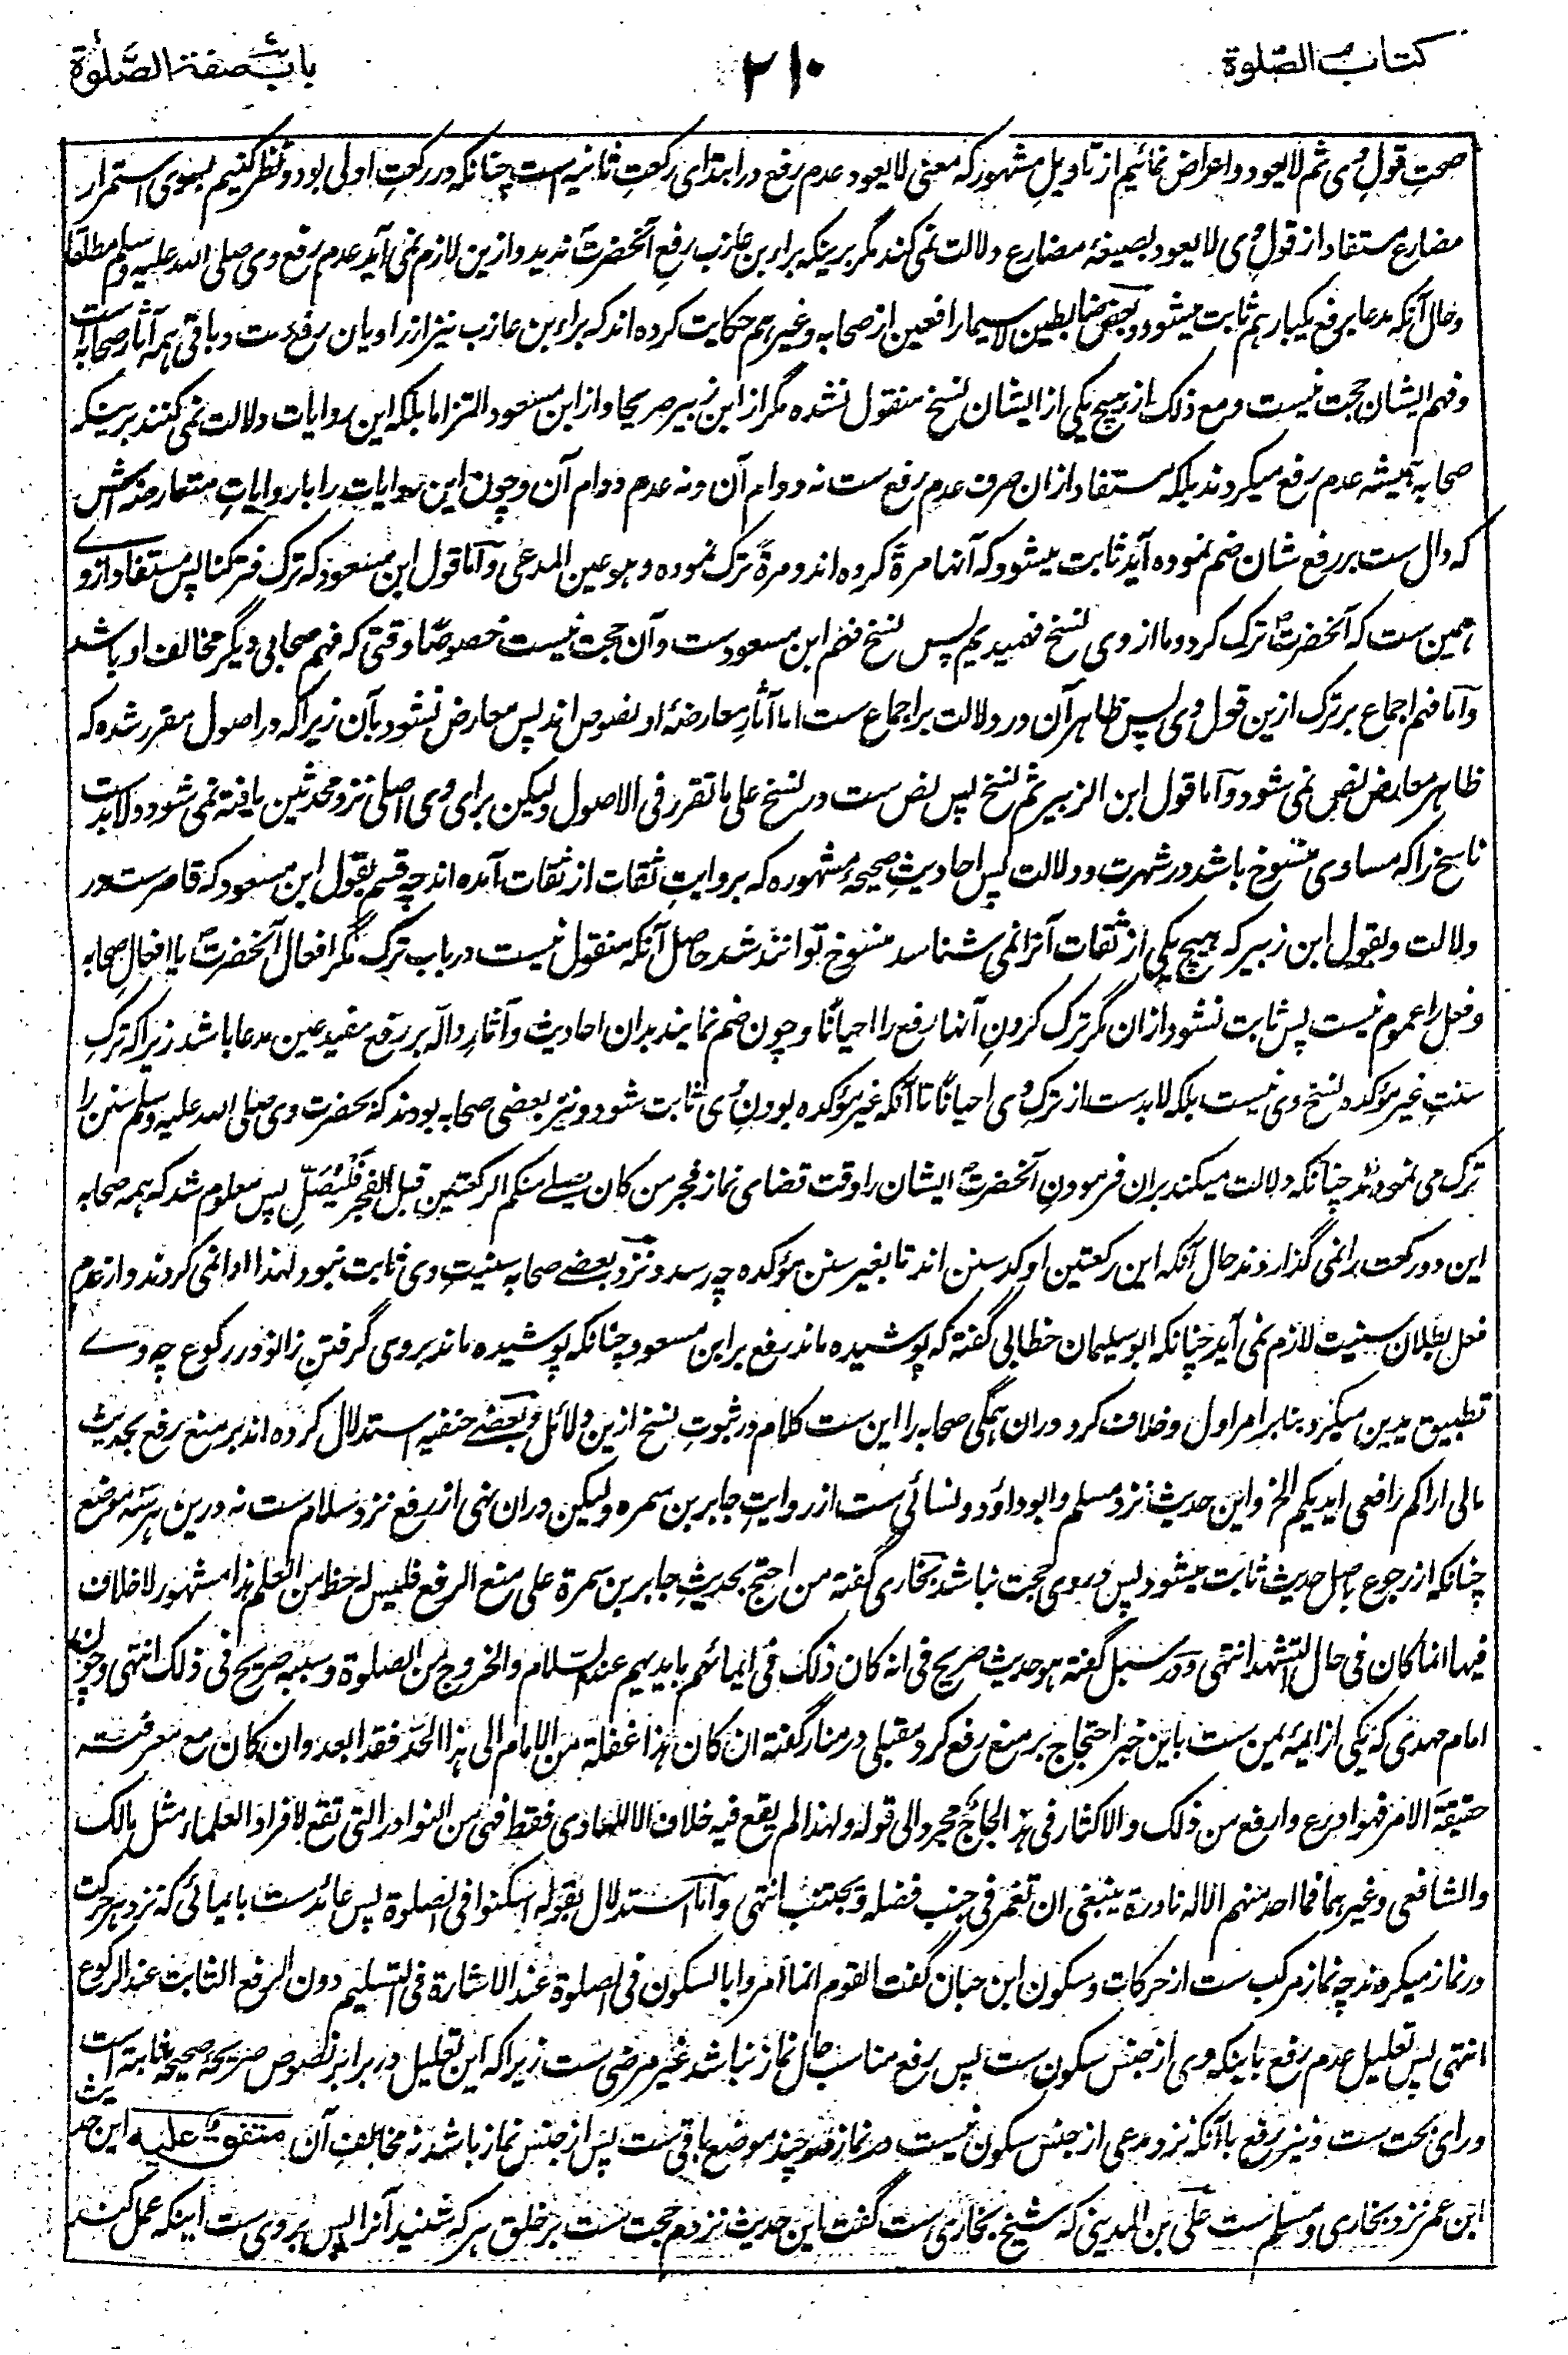 کتاب الصّلوة
۲۱۰
باب صفة الصّلوٰة
صحتِ قولِ وی ثم لا یعود و اعراض نمائیم از تاویلِ مشهور که معنی لا یعود عدم رفع در ابتدای رکعتِ ثانیه است چنانکه در رکعتِ اولی بود و نظر کنیم بسوی استمرار
مضارع مستفاد از قول وی لا یعود بصیغهٔ مضارع دلالت نمی کند مگر برینکه براء بن عازب رفعِ آنحضرتؐ ندید و ازین لازم نمی آید عدم رفع وی صلی الله علیه وسلم مطلقا
و حال آنکه مدعا برفع یکبار هم ثابت میشود و بعض ضابطین لاسیما رافعین از صحابه و غیرهم حکایت کرده اند که براء بن عازب نیز از راویان رفع ست و باقی همه آثار صحابه است
و فهم ایشان حجت نیست و مع ذلک از هیچ یکی از ایشان نسخ منقول نشده مگر از ابن زبیر صریحا و از ابن مسعود التزاما بلکه این روایات دلالت نمی کنند برینکه
صحابه همیشه عدم رفع میکردند بلکه مستفاد ازان صرف عدم رفع ست نه دوام آن و نه عدم دوام آن و چون این روایات را با روایاتِ متعارضه‌اش
که دال ست بر رفع شان ضم نموده آید ثابت میشود که آنها مرةً کرده اند و مرةً ترک نموده و هو عین المدعی و آما قول ابن مسعود که ترک فترکنا پس مستفاد از وے
همین ست که آنحضرتؐ ترک کرد و ما از وی نسخ فهمیدیم پس نسخ فهم ابن مسعود ست و آن حجت نیست خصوصًا وقتی که فهم صحابی دیگر مخالف او باشد
و آما فهم اجماع بر ترک ازین قول وی پس ظاهر آن در دلالت بر اجماع ست اما آثارِ معارضهٔ او نصوص اند پس معارض نشود بآن زیراکه در اصول مقرر شده که
ظاهر معارض نص نمی شود و آما قول ابن الزبیر ثم نسخ پس نص ست در نسخ علی ما تقرر فی الاصول ولیکن برای وی اصلی نزد محدثین یافته نمی شود و لابد ست
ناسخ را که مساوی منسوخ باشد در شهرت و دلالت پس احادیثِ صحیحهٔ مشهوره که بروایتِ ثقات از ثقات آمده اند چه قسم بقول ابن مسعود که قاصر ست در
دلالت و بقول ابن زبیر که هیچ یکی از ثقات آنرا نمی شناسد منسوخ توانند شد حاصل آنکه منقول نیست در باب ترک مگر افعال آنحضرتؐ یا افعالِ صحابه
و فعل را عموم نیست پس ثابت نشود ازان مگر ترک کردنِ آنها رفع را احیانًا و چون ضم نمایند بدان احادیث و آثارِ دالّه بر رفع مفید عین مدعا باشد زیراکه ترکِ
سنتِ غیر مؤکده نسخ وی نیست بلکه لابد ست از ترک وی احیانًا تا آنکه غیر مؤکده بودنِ وی ثابت شود و نیز بعضی صحابه بودند که بحضرت وی صلی الله علیه وسلم سنن را
ترک می نمودند چنانکه دلالت میکند بران فرمودنِ آنحضرتؐ ایشان را وقت قضای نماز فجر من کان یصلے منکم الرکعتین قبل الفجر فَلْیُصَلِّ پس معلوم شد که همه صحابه
این دو رکعت را نمی گذاردند حال آنکه این رکعتین اوکد سنن اند تا بغیر سنن مؤکده چه رسد و نزد بعضے صحابه سنیتِ وی ثابت نبود لهذا ادا نمی کردند و از عدم
فعل بطلان سنیت لازم نمی آید چنانکه ابو سلیمان خطابی گفته که پوشیده ماند رفع بر ابن مسعود چنانکه پوشیده ماند بر وی گرفتنِ زانو در رکوع چه وے
تطبیق یدین میکرد بنا بر امر اول و خلاف کرد دران همگی صحابه را این ست کلام در ثبوتِ نسخ ازین دلائل و بعضے حنفیه استدلال کرده اند بر منع رفع بحدیث
مالی اراکم رافعی ایدیکم الخ و این حدیث نزد مسلم و ابو داود و نسائی ست از روایتِ جابر بن سمره ولیکن دران نهی از رفع نزد سلام ست نه درین هر سه موضع
چنانکه از رجوع باصل حدیث ثابت میشود پس در وی حجت نباشد بخاری گفته من احتج بحدیثِ جابر بن سمرة علی منع الرفع فلیس له حظ من العلم هذا مشهور لا خلاف
فیها انما کان فی حال التشهد انتهی و در سبل گفته هو حدیث صریح فی انه کان ذلک فی ایمائهم بایدیهم عند السلام و الخروج من الصلوة و سببه صریح فی ذلک انتهی و چون
امام مهدی که یکی از ایمهٔ یمن ست باین خبر احتجاج بر منع رفع کرد مقبلی در منار گفته ان کان هذا غفلة من الامام الی هذا الحدّ فقد ابعد و ان کان مع معرفته
حقیقة الامر فهو اورع و ارفع من ذلک و الاکثار فی هذا لجاج مجرد الی قوله و لهذا لم یقع فیه خلاف الا للهادی فقط فهی من النوادر التی تقع لافراد العلماء مثل مالک
و الشافعی و غیرهما فما احد منهم الا له نادرة ینبغی ان تغمر فی جنب فضله و تجتنب انتهی و آما استدلال بقوله اسکنوا فی الصلوة پس عائد ست بایمائی که نزد هر حرکت
در نماز میکردند چه نماز مرکب ست از حرکات و سکون ابن حبان گفت القوم انما امروا بالسکون فی الصلوة عند الاشارة فی التسلیم دون الرفع الثابت عند الرکوع
انتهی پس تعلیل عدم رفع باینکه وی از جنس سکون ست پس رفع مناسب حال نماز نباشد غیر مرضی ست زیراکه این تعلیل در برابر نصوص صریحهٔ صحیحهٔ ثابته است
ورای بحت ست و نیز رفع باآنکه نزد مدعی از جنس سکون نیست در نماز چند موضع باقی ست پس از جنس نماز باشد نه مخالف آن متفقٌ علیه این حدیث
ابن عمر نزد بخاری و مسلم ست علی بن المدینی که شیخ بخاری ست گفت این حدیث نزدم حجت ست بر خلق هر که شنید آنرا پس بر وی ست اینکه عمل کند